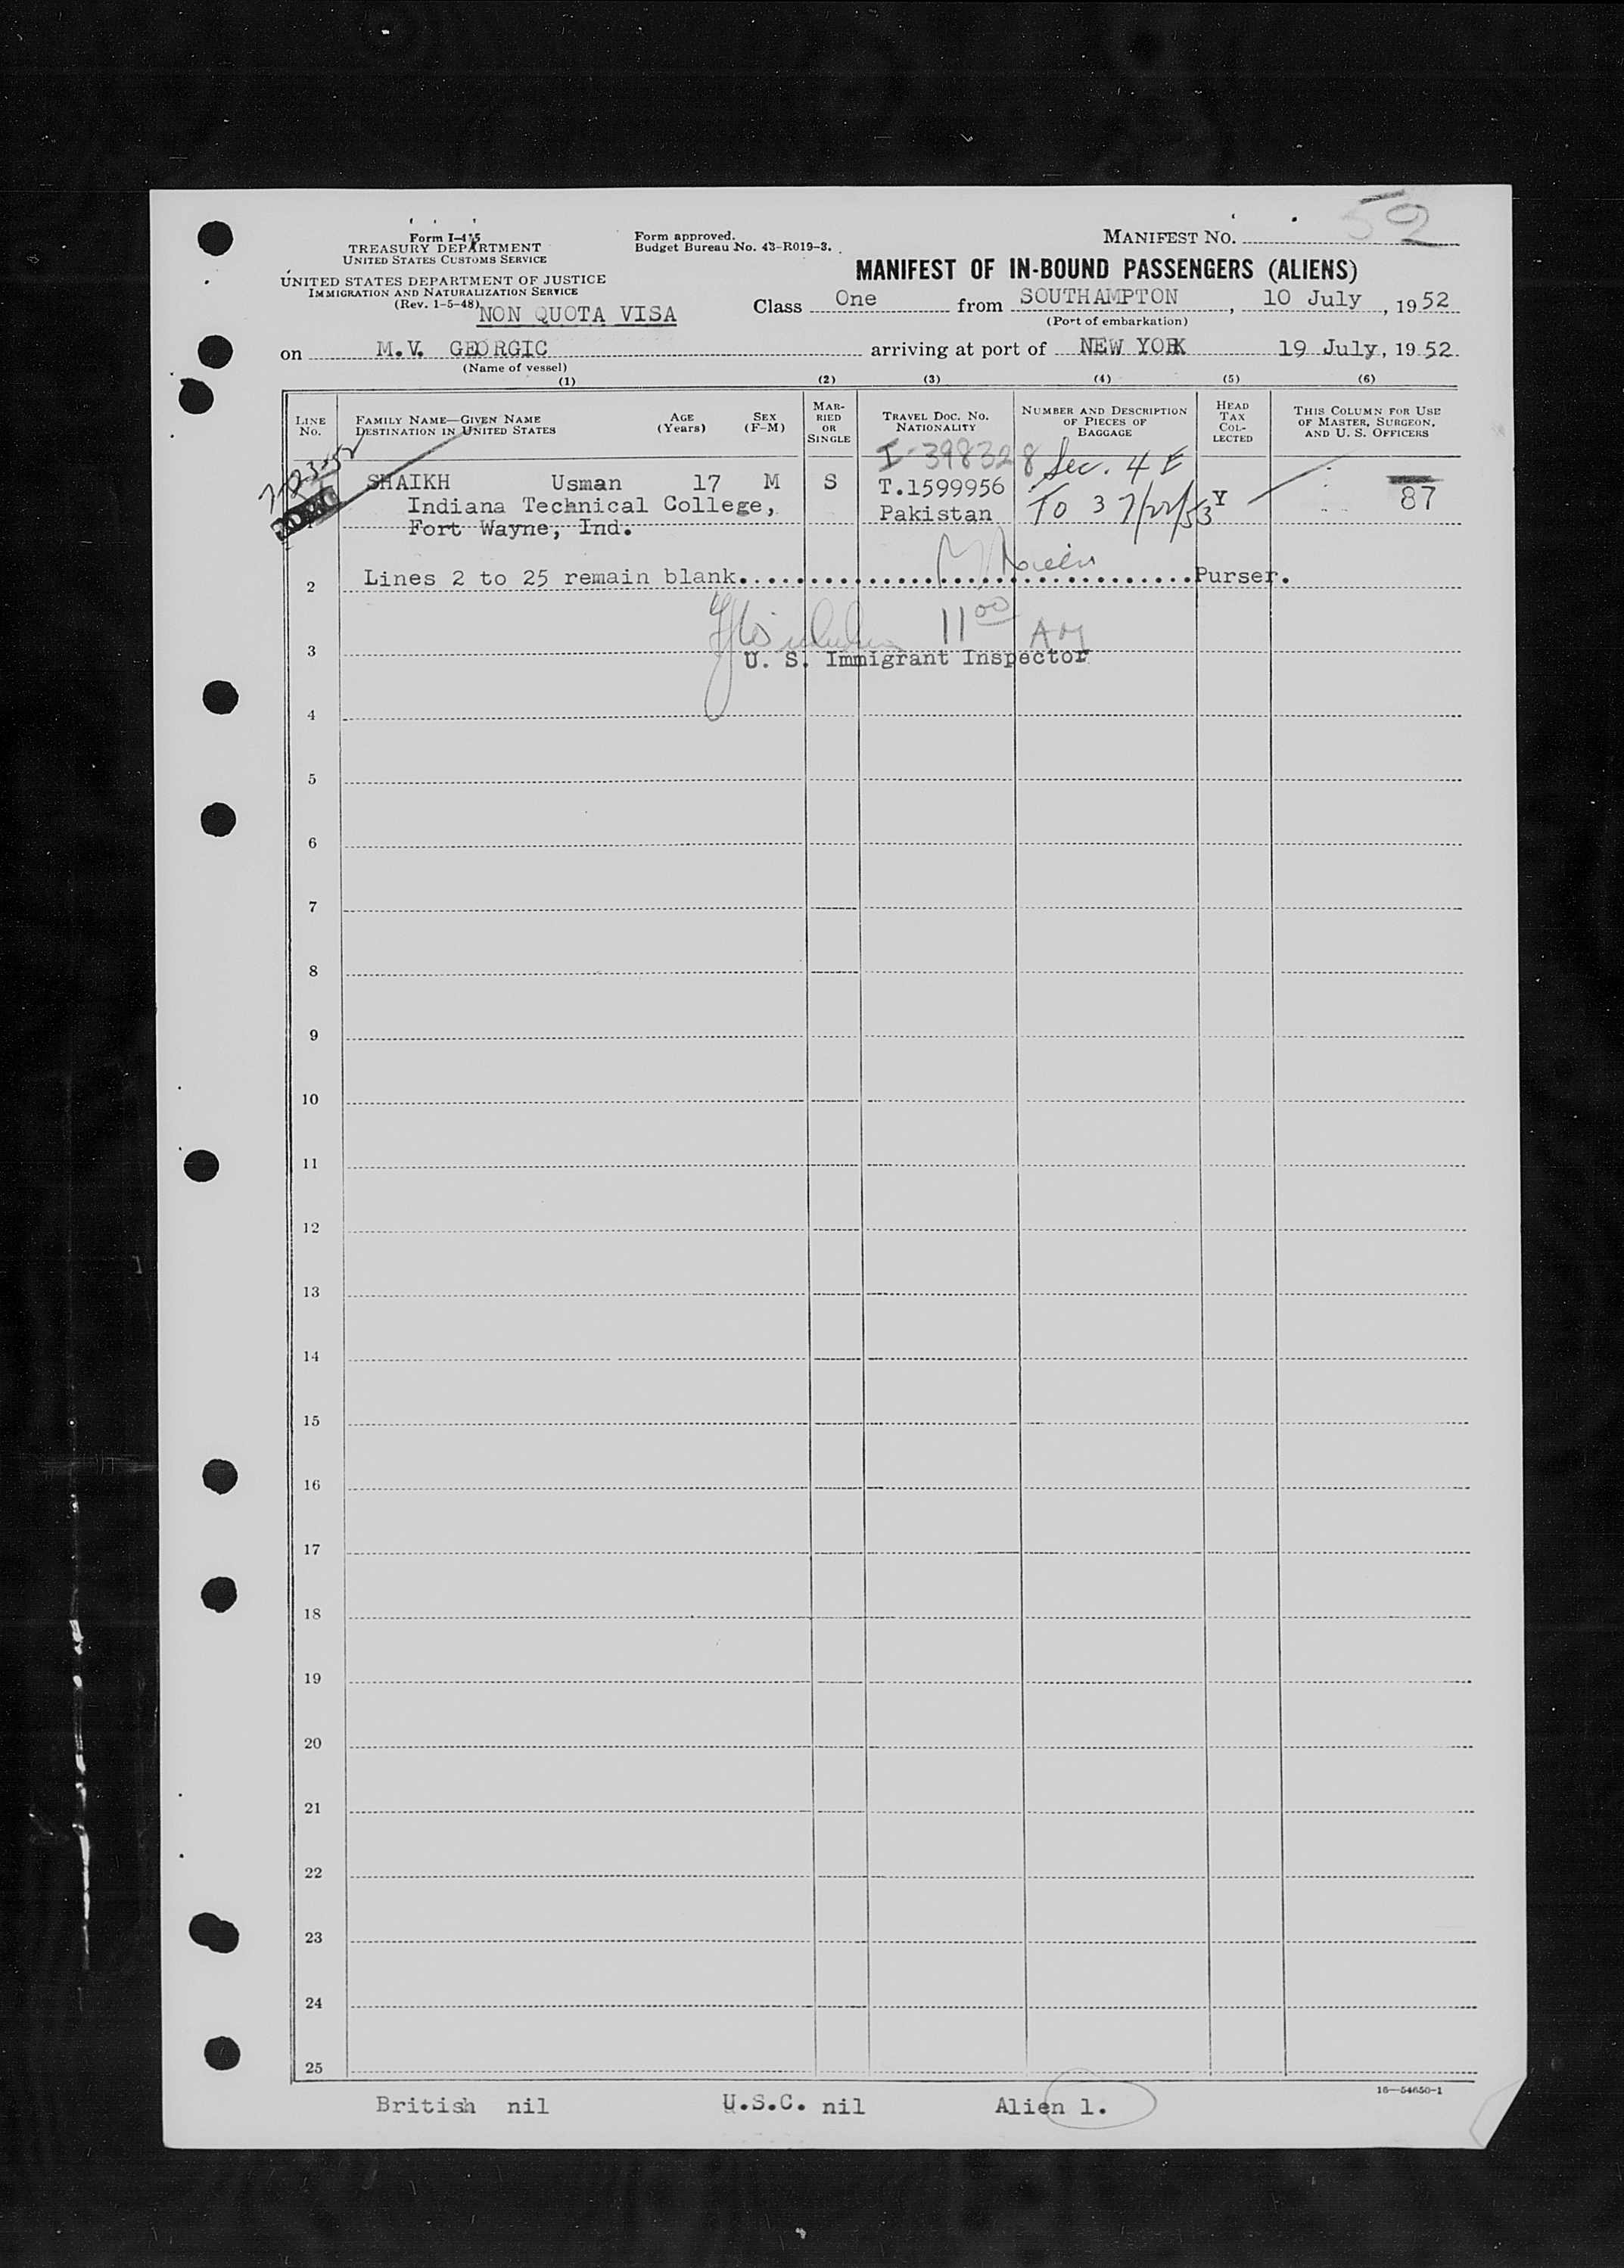 59
Form I-415
TREASURY DEPARTMENT
UNITED STATES CUSTOMS SERVICE
UNITED STATES DEPARTMENT OF JUSTICE
IMMIGRATION AND NATURALIZATION SERVICE
(Rev. 1-5-48)
NON QUOTA VISA
Form approved.
Budget Bureau No. 43-R019-3.
MANIFEST NO.
MANIFEST OF IN-BOUND PASSENGERS (ALIENS)
Class One from SOUTHAMPTON, 10 July, 1952
(Port of embarkation)
on M.V. GEORGIC arriving at port of NEW YORK 19 July, 1952.
(Name of vessel)
(1) (2) (3) (4) (5) (6)
LINE NO.
FAMILY NAME—GIVEN NAME
DESTINATION IN UNITED STATES
AGE (Years)
SEX (F-M)
MARRIED OR SINGLE
TRAVEL DOC. NO. NATIONALITY
NUMBER AND DESCRIPTION OF PIECES OF BAGGAGE
HEAD TAX COLLECTED
THIS COLUMN FOR USE OF MASTER, SURGEON, AND U. S. OFFICERS
7-23-52
I-398328 Sec. 4 E
SHAIKH Usman 17 M S T.1599956 To 3 7/22/53 Y 87
Indiana Technical College, Pakistan
Fort Wayne, Ind.
2 Lines 2 to 25 remain blank. Purser.
11 00 AM
3 U. S. Immigrant Inspector
4
5
6
7
8
9
10
11
12
13
14
15
16
17
18
19
20
21
22
23
24
25
16—54650-1
British nil U.S.C. nil Alien 1.